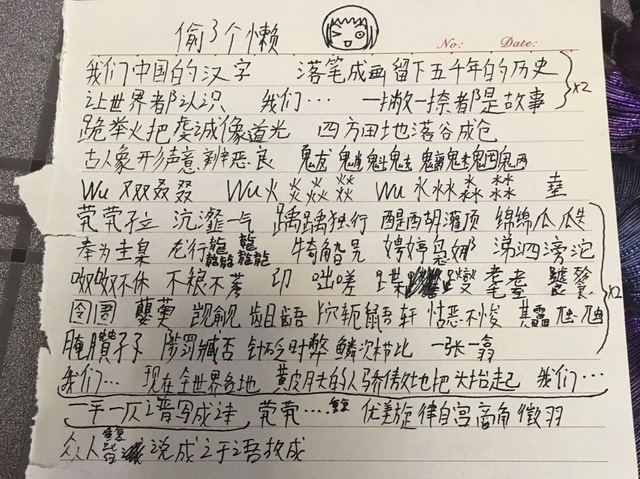 偷了个懒
No: Date:
我们中国的汉字 落笔成画留下五千年的历史
让世界都认识 我们… 一撇一捺都是故事 ×2
跪举火把虔诚像道光 四方田地落谷成仓
古人象形声意辨恶良
Wu 又双叒叕 Wu 火炎焱燚 Wu 水沝淼㵘 㙓
茕茕孑立 沆瀣一气 踽踽独行 醍醐灌顶 绵绵瓜瓞
奉为圭臬 龙行龘龘 犄角旮旯 娉婷袅娜 涕泗滂沱
呶呶不休 不稂不莠 卬 咄嗟 蹀躞 耄耋 饕餮
囹圄 蘡薁 觊觎 龃龉 狖轭鼯轩 怙恶不悛 其靁虺虺
腌臢孑孓 陟罚臧否 针砭时弊 鳞次栉比 一张一翕 ×2
我们… 现在全世界各地 黄皮肤的人骄傲地把头抬起 我们…
一平一仄谱写成诗 茕茕…重复 优美旋律自宫商角徵羽
众人 说成之于语教成